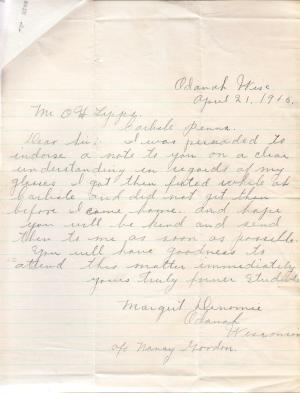 Odanah Wisc
April 21, 1916.
Mr. O H Lippy.
Carlisle Penna.
Dear Sir: I was persuaded to
indorse a note to you on a clear
understanding in regards of my
glasses I got them fitted while at
Carlisle and did not get them
before I came home. and hope
you will be kind and send
them to me as soon as possible.
You will have goodness to
attend this matter immediately
yours truly former Student
Margret Denomie
Odanah
Wisconsin
c/o Nancy Gordon.